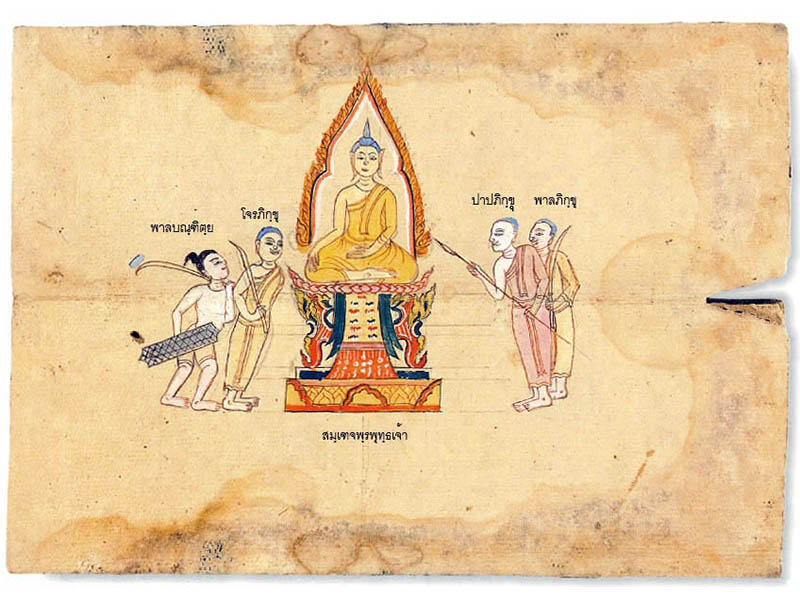 พาลบณฺฑิตฺย
โจรภิกฺขุ
ปาปภิกฺขุ
พาลภิกฺขุ
สมฺเฑจพฺรพุทฺธเจ้า